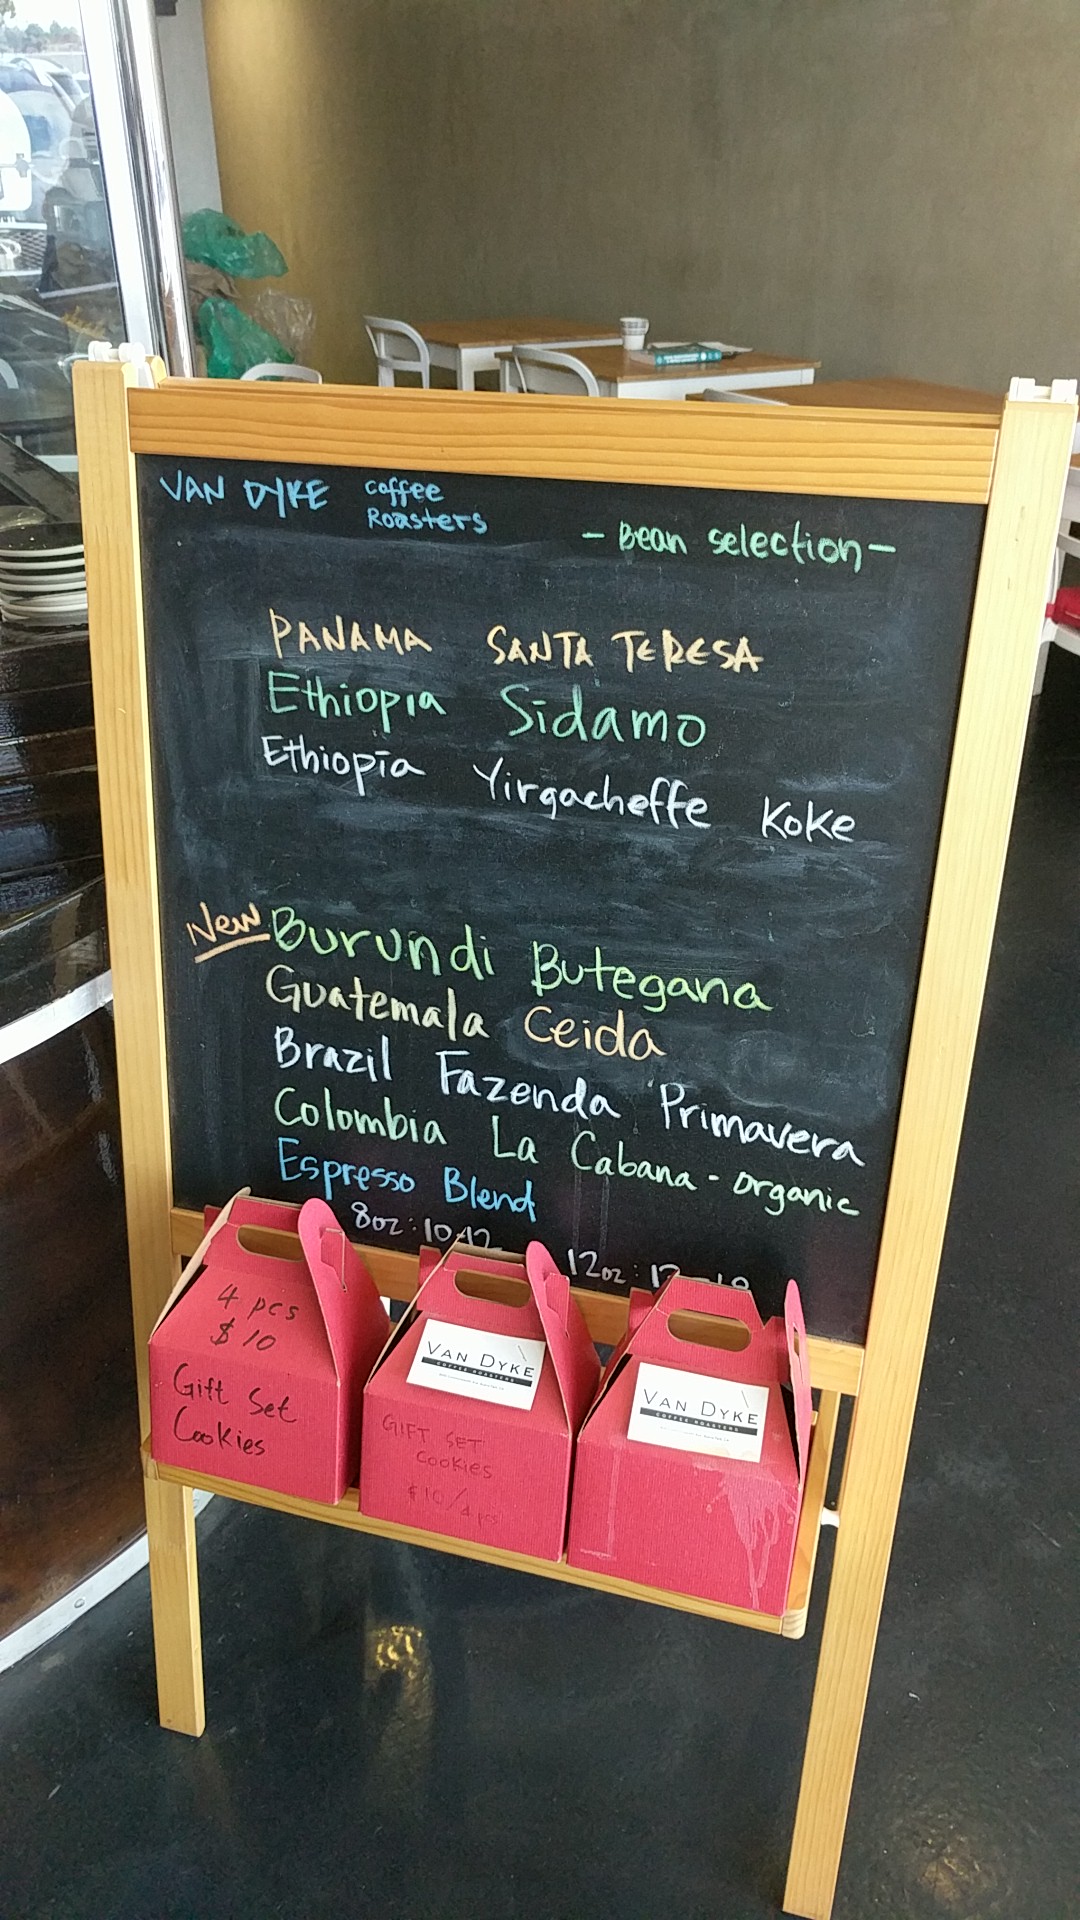 VAN DYKE coffee Roasters
- Bean selection -
PANAMA SANTA TERESA
Ethiopia Sidamo
Ethiopia Yirgacheffe Koke
New Burundi Butegana
Guatemala Ceida
Brazil Fazenda Primavera
Colombia La Cabana - organic
Espresso Blend
8oz: 10-12 12oz:
4 pcs
$10
Gift Set
Cookies
VAN DYKE
COFFEE ROASTERS
GIFT SET
Cookies
$10/4 pcs
VAN DYKE
COFFEE ROASTERS